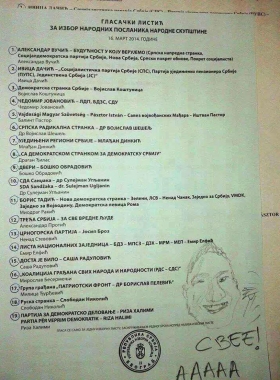 ГЛАСАЧКИ ЛИСТИЋ
ЗА ИЗБОР НАРОДНИХ ПОСЛАНИКА НАРОДНЕ СКУПШТИНЕ
16. МАРТ 2014. ГОДИНЕ
1 АЛЕКСАНДАР ВУЧИЋ - БУДУЋНОСТ У КОЈУ ВЕРУЈЕМО (Српска напредна странка,
Социјалдемократска партија Србије, Нова Србија, Српски покрет обнове, Покрет социјалиста)
Александар Вучић
2 ИВИЦА ДАЧИЋ - „Социјалистичка партија Србије (СПС), Партија уједињених пензионера Србије
(ПУПС), Јединствена Србија (ЈС)"
Ивица Дачић
3 Демократска странка Србије - Војислав Коштуница
Војислав Коштуница
4 ЧЕДОМИР ЈОВАНОВИЋ - ЛДП, БДЗС, СДУ
Чедомир Јовановић
5 Vajdasági Magyar Szövetség - Pásztor István - Савез војвођанских Мађара - Иштван Пастор
Балинт Пастор
6 СРПСКА РАДИКАЛНА СТРАНКА - ДР ВОЈИСЛАВ ШЕШЕЉ
Др Војислав Шешељ
7 УЈЕДИЊЕНИ РЕГИОНИ СРБИЈЕ - МЛАЂАН ДИНКИЋ
Млађан Динкић
8 „СА ДЕМОКРАТСКОМ СТРАНКОМ ЗА ДЕМОКРАТСКУ СРБИЈУ"
Драган Ђилас
9 ДВЕРИ - БОШКО ОБРАДОВИЋ
Бошко Обрадовић
10 СДА Санџака - др Сулејман Угљанин
SDA Sandžaka - dr. Sulejman Ugljanin
Др Сулејман Угљанин
11 БОРИС ТАДИЋ - Нова демократска странка - Зелени, ЛСВ - Ненад Чанак, Заједно за Србију, VMDK,
Заједно за Војводину, Демократска левица Рома
12 ТРЕЋА СРБИЈА - ЗА СВЕ ВРЕДНЕ ЉУДЕ
13 ЦРНОГОРСКА ПАРТИЈА - Јосип Броз
Ненад Стевовић
14 ЛИСТА НАЦИОНАЛНИХ ЗАЈЕДНИЦА - БДЗ - МПСЗ - ДЗХ - МРМ - МЕП - Емир Елфић
Емир Елфић
15 ДОСТА ЈЕ БИЛО - САША РАДУЛОВИЋ
Саша Радуловић
16 „КОАЛИЦИЈА ГРАЂАНА СВИХ НАРОДА И НАРОДНОСТИ (РДС - СДС)"
17 Група грађана „ПАТРИОТСКИ ФРОНТ - ДР БОРИСЛАВ ПЕЛЕВИЋ"
18 Руска странка - Слободан Николић
Слободан Николић
19 ПАРТИЈА ЗА ДЕМОКРАТСКО ДЕЛОВАЊЕ - РИЗА ХАЛИМИ
PARTIA PËR VEPRIM DEMOKRATIK - RIZA HALIMI
Риза Халими
СВЕЕ!
ААААА